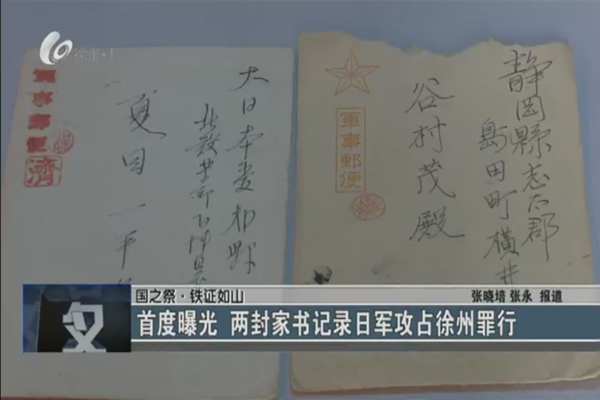 徐州·1
軍事郵便
濟
大日本
夏目一平
軍事郵便
静岡縣志太郡
島田町横井
谷村茂殿
国之祭·铁证如山
张晓培 张永 报道
首度曝光 两封家书记录日军攻占徐州罪行